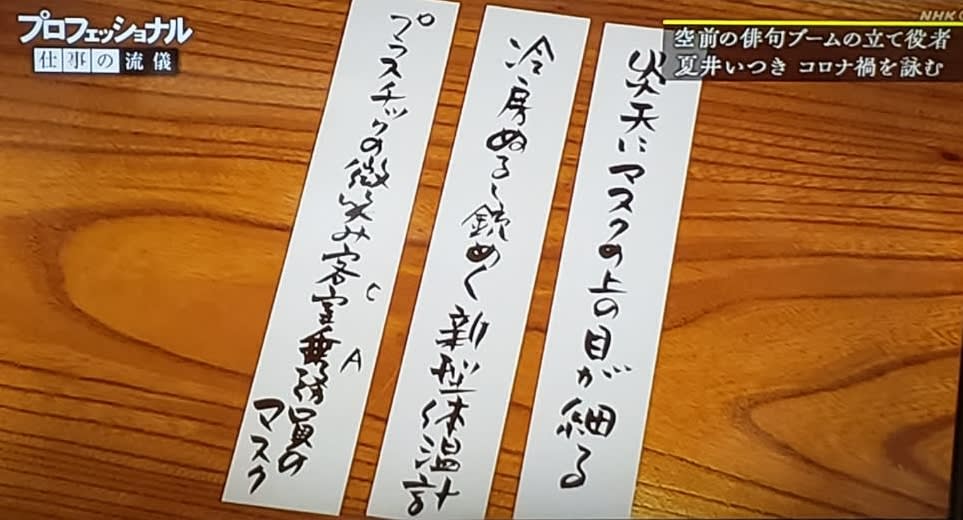 プロフェッショナル
仕事の流儀
NHK
空前の俳句ブームの立て役者
夏井いつき コロナ禍を詠む
炎天にマスクの上の目が細る
冷房ぬるし銃めく新型体温計
プラスチックの微笑み客室乗務員のマスク
CA